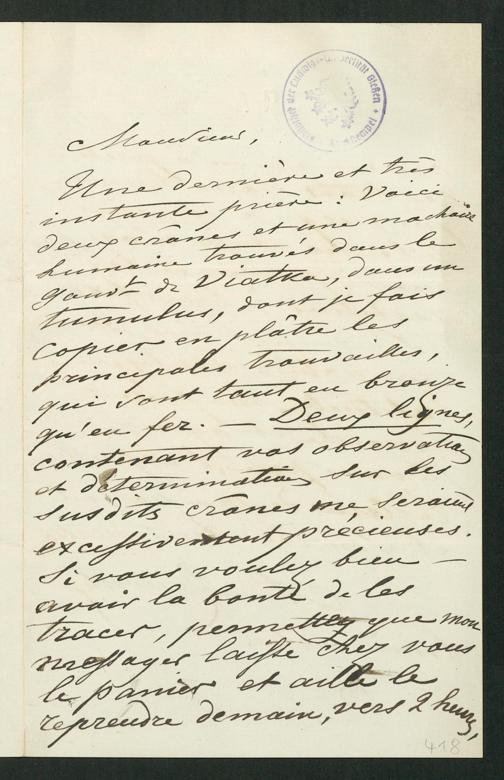 der Ludwigs-Universität Gießen
Monsieur,
Une dernière et très
instante prière: Voici
deux crânes et une machoire
humaine trouvés dans le
gouvt de Viatka, dans un
tumulus, dont je fais
copier en plâtre les
principales trouvailles,
qui sont tant en bronze
qu'en fer. — Deux lignes,
contenant vos observations
et déterminations sur les
susdits crânes me seraient
excessivement précieuses.
Si vous voulez bien —
avoir la bonté de les
tracer, permettez que mon
messager laisse chez vous
le panier et aille le
reprendre demain, vers 2 heures,
418